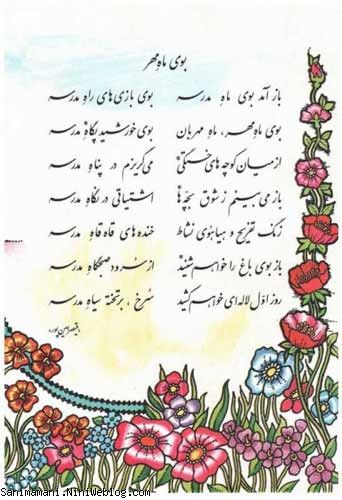 بوی ماه مهر
باز آمد بوی ماه مدرسه بوی بازی های راه مدرسه
بوی ماه مهر، ماه مهربان بوی خورشید پگاه مدرسه
از میان کوچه های خستگی می گریزم در پناه مدرسه
باز می بینم ز شوق بچّه ها اشتیاقی در نگاه مدرسه
زنگ تفریح و هیاهوی نشاط خنده های قاه قاه مدرسه
باز بوی باغ را خواهم شنید از سرود صبحگاه مدرسه
روز اوّل لاله ای خواهم کشید سرخ، بر تخته سیاه مدرسه
قیصر امین پور
Sanimamani.Niniweblog.com